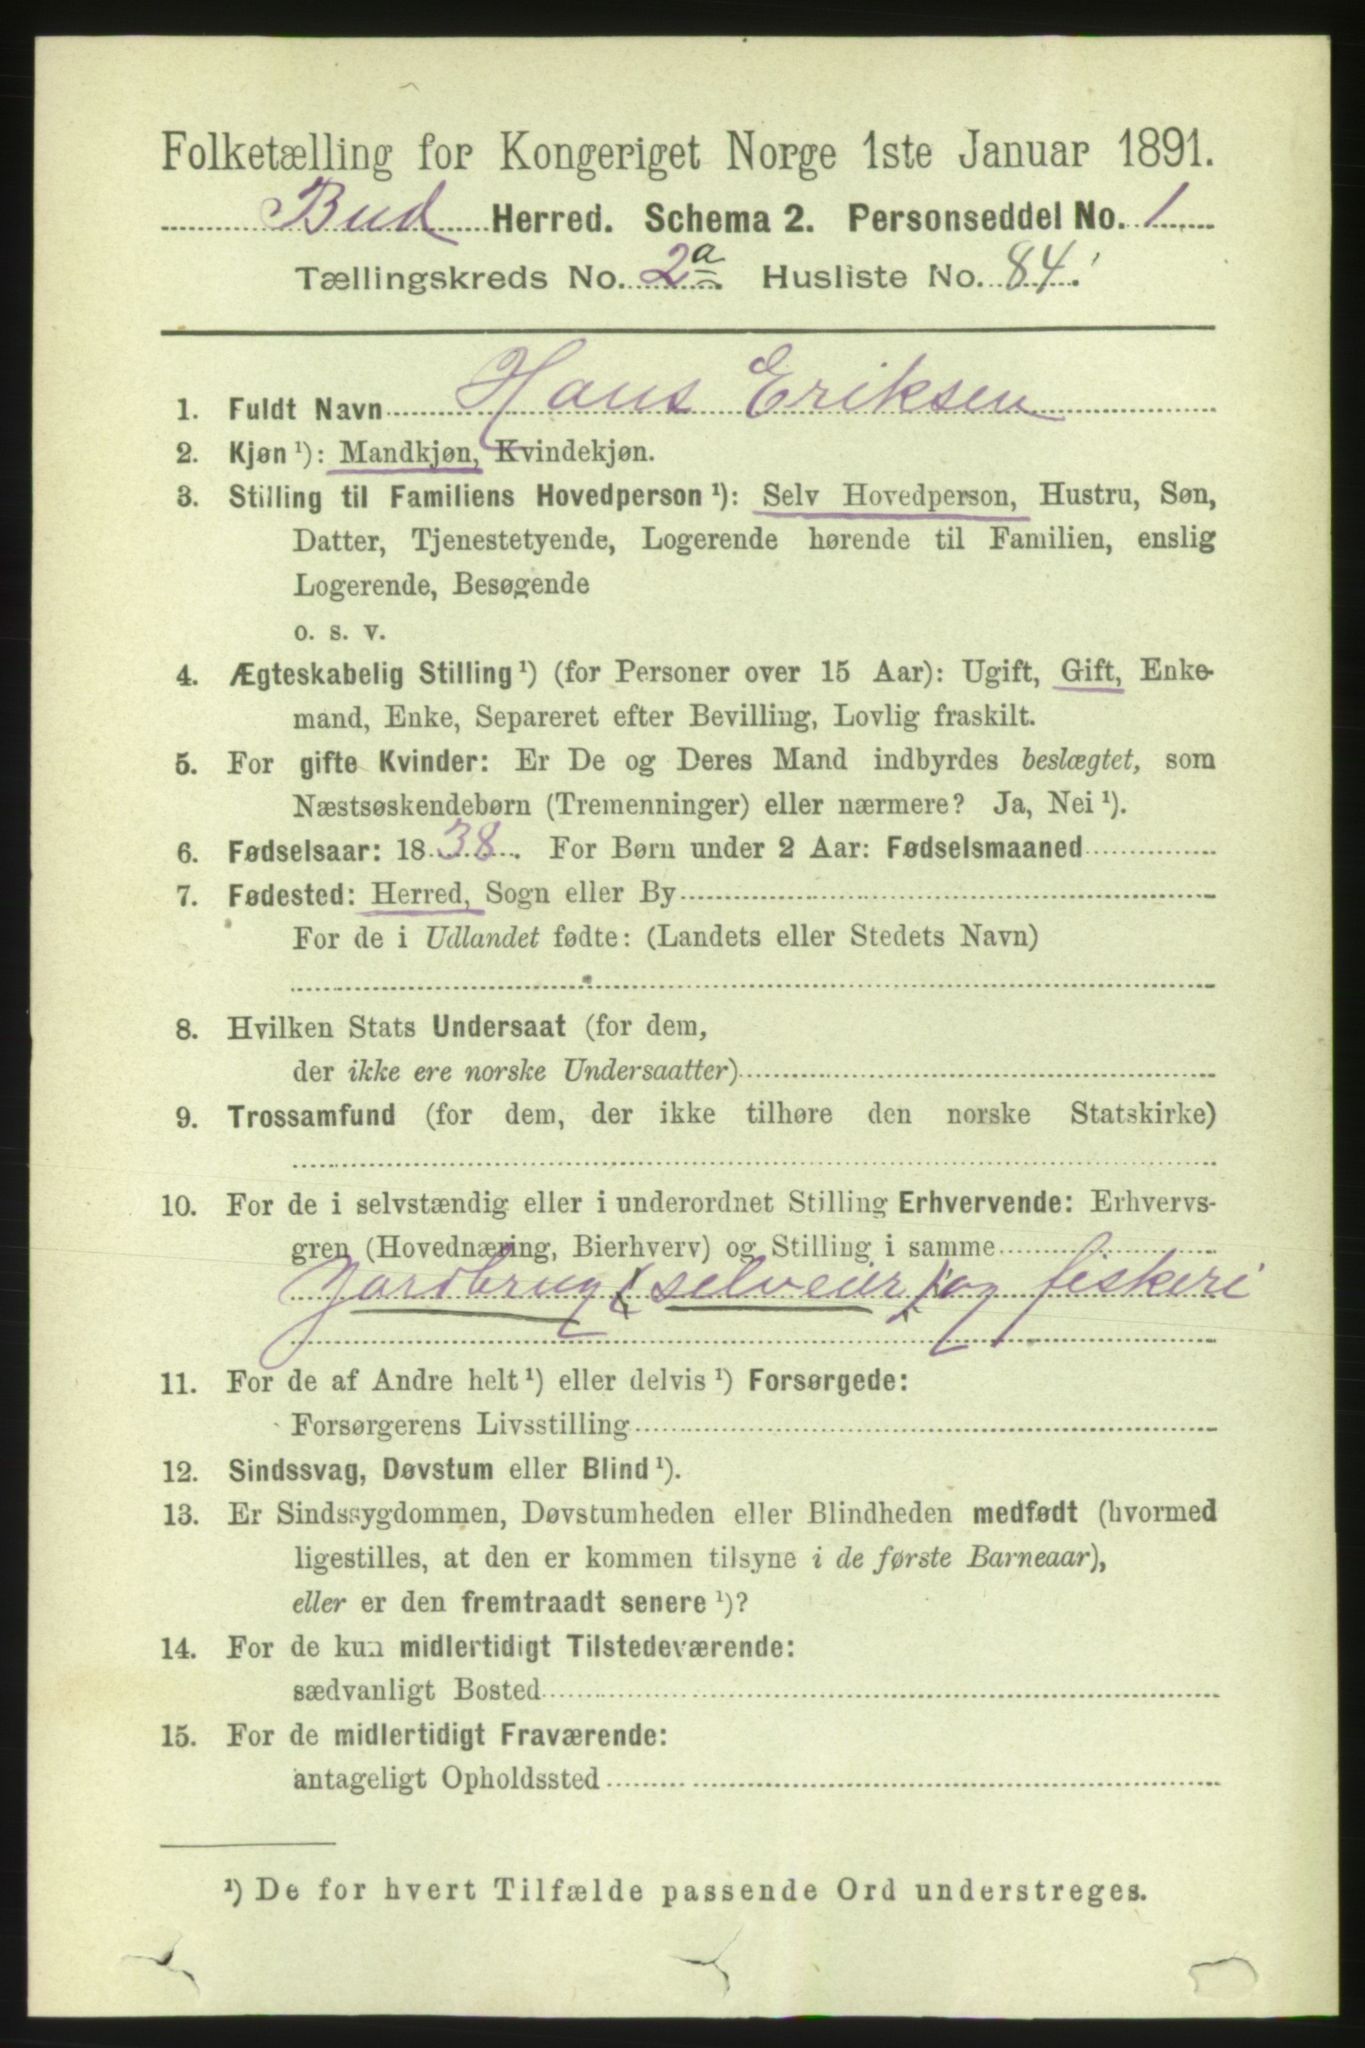 Folketælling for Kongeriget Norge 1ste Januar 1891.
Bud Herred. Schema 2. Personseddel No. 1
Tællingskreds No. 2a. Husliste No. 84.
1. Fuldt Navn Hans Eriksen
2. Kjøn ¹): Mandkjøn, Kvindekjøn.
3. Stilling til Familiens Hovedperson ¹): Selv Hovedperson, Hustru, Søn,
Datter, Tjenestetyende, Logerende hørende til Familien, enslig
Logerende, Besøgende
o. s. v.
4. Ægteskabelig Stilling ¹) (for Personer over 15 Aar): Ugift, Gift, Enke-
mand, Enke, Separeret efter Bevilling, Lovlig fraskilt.
5. For gifte Kvinder: Er De og Deres Mand indbyrdes beslægtet, som
Næstsøskendebørn (Tremenninger) eller nærmere? Ja, Nei ¹).
6. Fødselsaar: 1838. For Børn under 2 Aar: Fødselsmaaned
7. Fødested: Herred, Sogn eller By
For de i Udlandet fødte: (Landets eller Stedets Navn)
8. Hvilken Stats Undersaat (for dem,
der ikke ere norske Undersaatter)
9. Trossamfund (for dem, der ikke tilhøre den norske Statskirke)
10. For de i selvstændig eller i underordnet Stilling Erhvervende: Erhvervs-
gren (Hovednæring, Bierhverv) og Stilling i samme
Jardbrug (selveier) og fiskeri
11. For de af Andre helt ¹) eller delvis ¹) Forsørgede:
Forsørgerens Livsstilling
12. Sindssvag, Døvstum eller Blind ¹).
13. Er Sindssygdommen, Døvstumheden eller Blindheden medfødt (hvormed
ligestilles, at den er kommen tilsyne i de første Barneaar),
eller er den fremtraadt senere ¹)?
14. For de kun midlertidigt Tilstedeværende:
sædvanligt Bosted
15. For de midlertidigt Fraværende:
antageligt Opholdssted
¹) De for hvert Tilfælde passende Ord understreges.